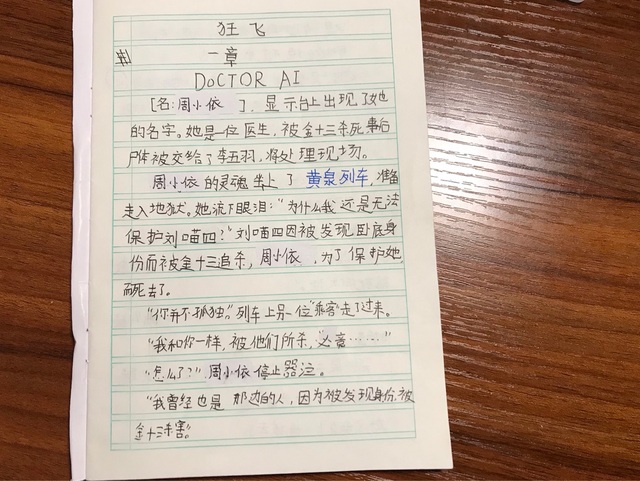 狂飞
一章
DOCTOR AI
[名:周小依 ]，显示台上出现了她
的名字。她是一位医生，被金十三杀死，事后
尸体被交给了李五羽，将处理现场。
周小依的灵魂坐上了黄泉列车，准备
走入地狱。她流下眼泪：“为什么我还是无法
保护刘喵四？”刘喵四因被发现卧底身
份而被金十三追杀，周小依，为了保护她
而死去了。
“你并不孤独。”列车上另一位“乘客”走了过来。
“我和你一样，被他们所杀，必竟……”
“怎么了？”周小依停止器泣。
“我曾经也是那边的人，因为被发现身份，被
金十三杀害。”